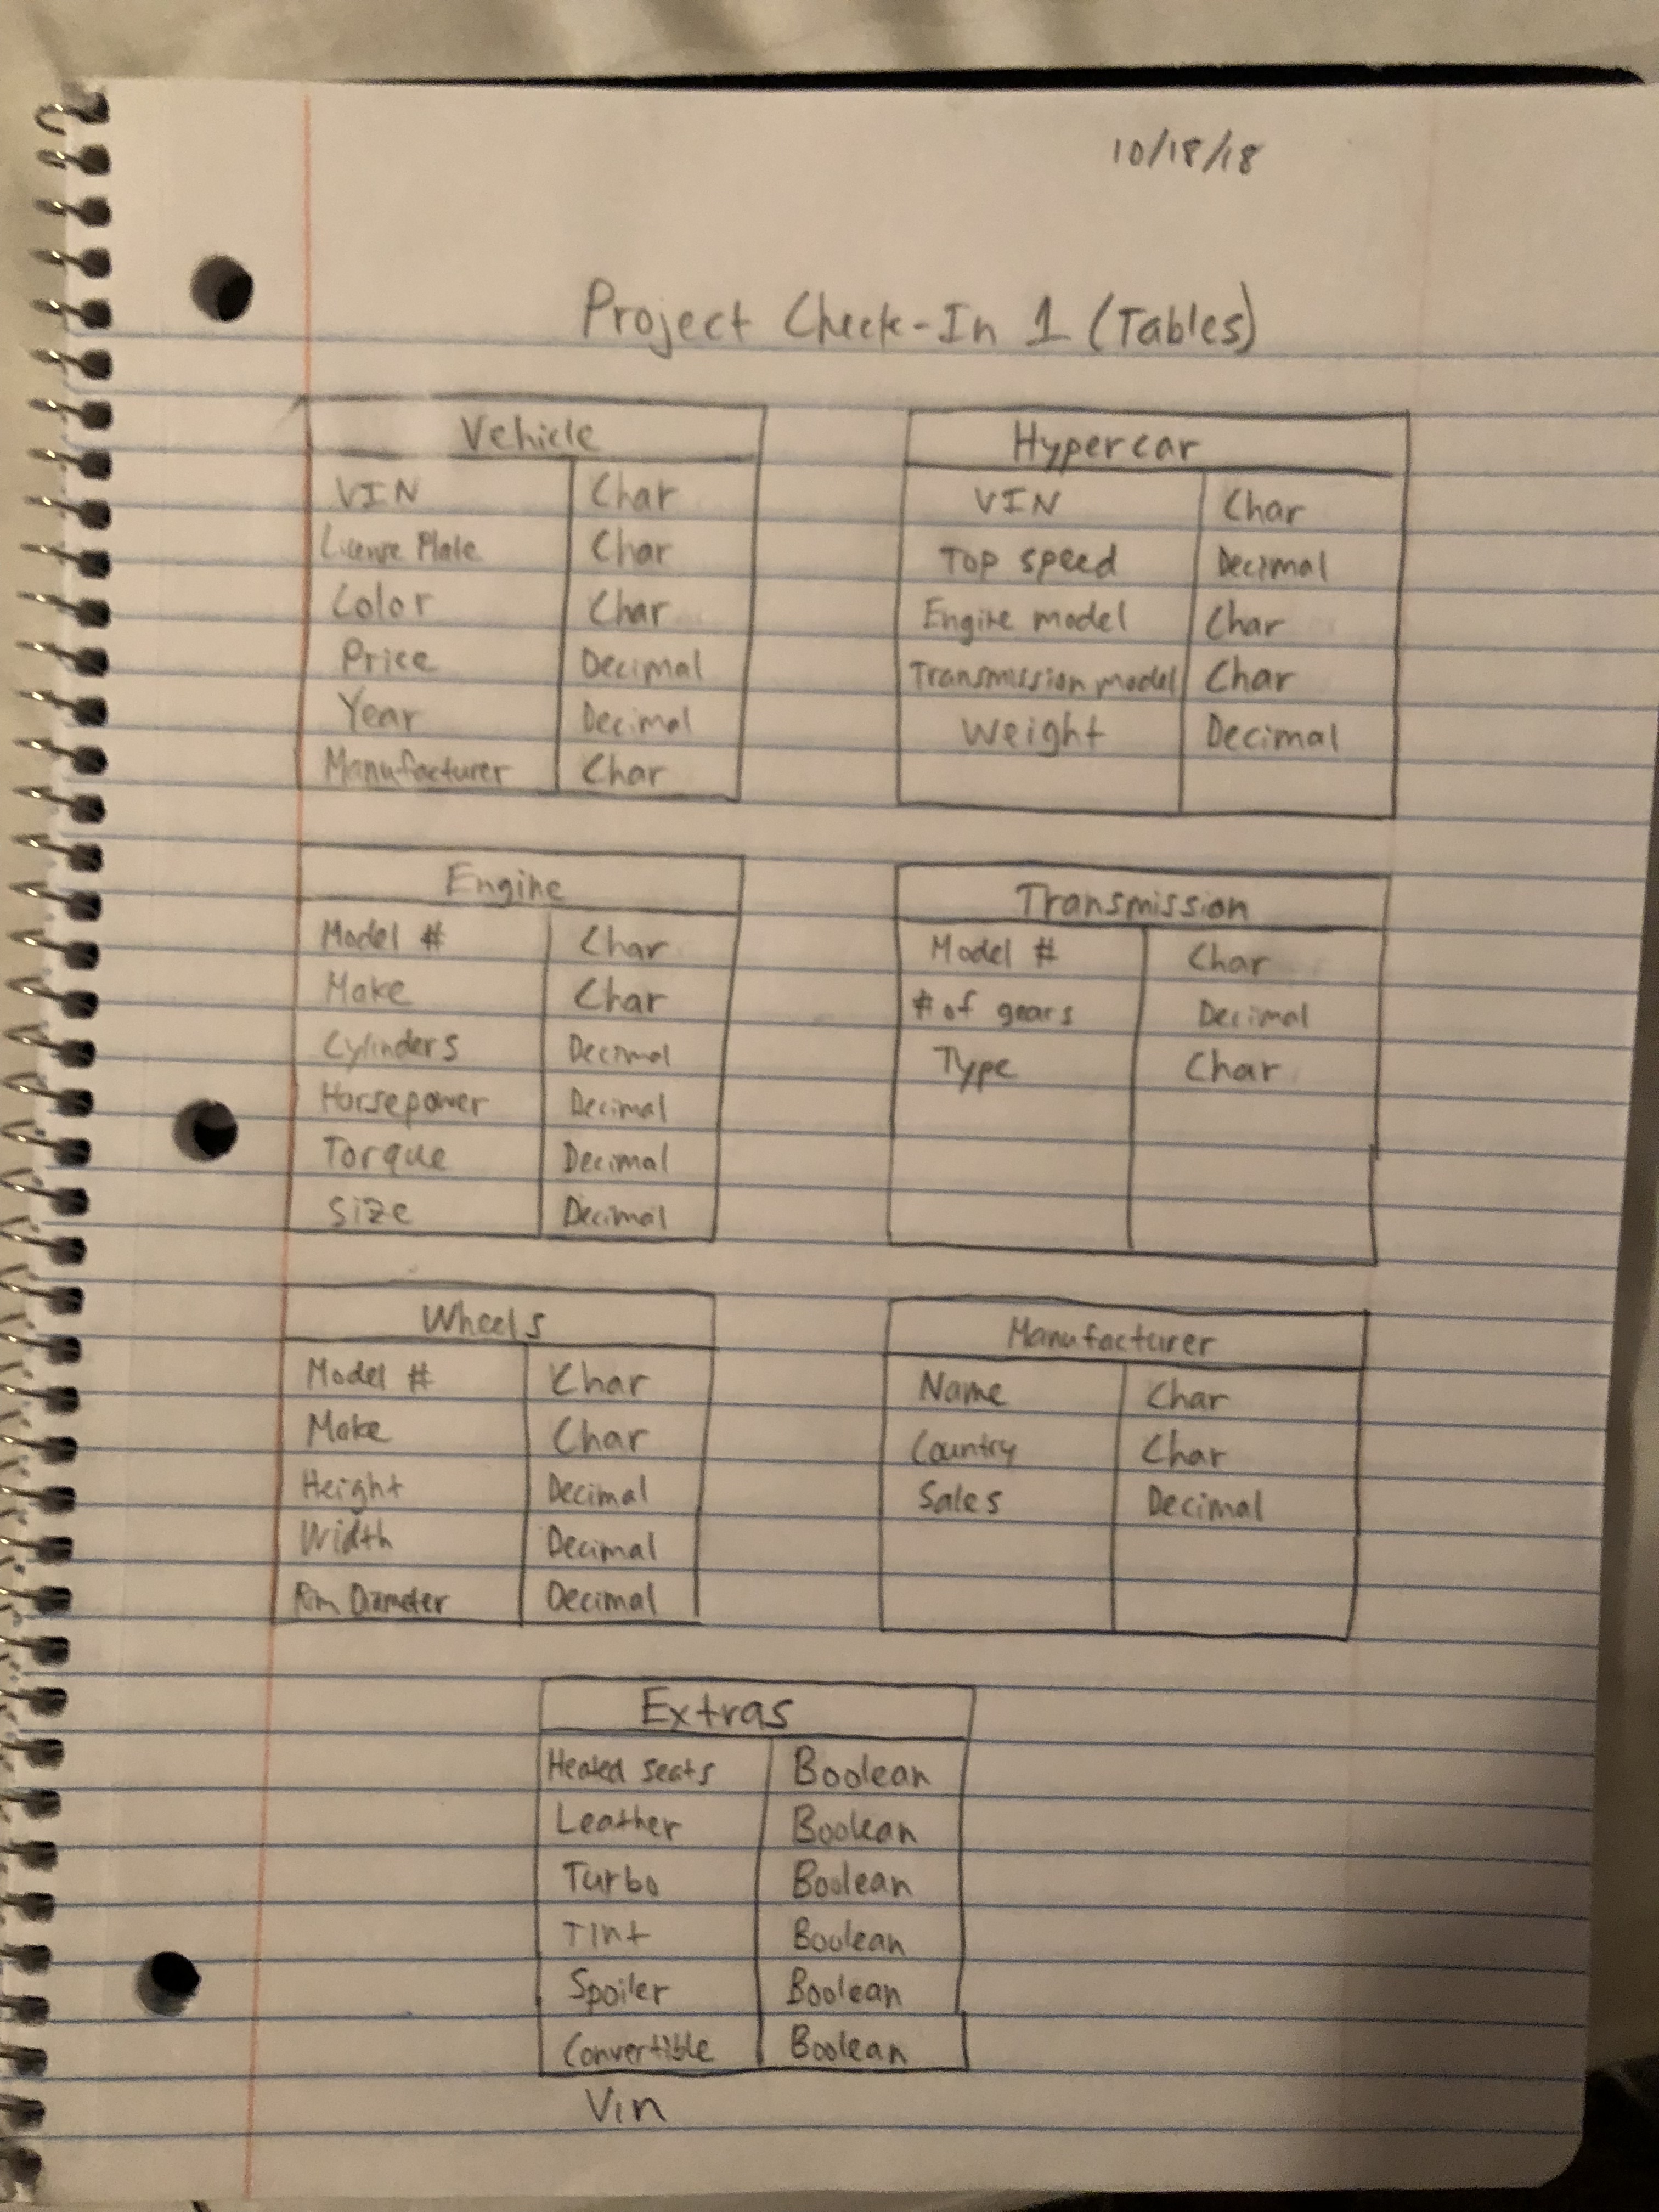 10/18/18
Project Check-In 1 (Tables)
Vehicle
VIN Char
License Plate Char
Color Char
Price Decimal
Year Decimal
Manufacturer Char
Hypercar
VIN Char
Top speed Decimal
Engine model Char
Transmission model Char
Weight Decimal
Engine
Model # Char
Make Char
Cylinders Decimal
Horsepower Decimal
Torque Decimal
Size Decimal
Transmission
Model # Char
# of gears Decimal
Type Char
Wheels
Model # Char
Make Char
Height Decimal
Width Decimal
Rim Diameter Decimal
Manufacturer
Name Char
Country Char
Sales Decimal
Extras
Heated seats Boolean
Leather Boolean
Turbo Boolean
Tint Boolean
Spoiler Boolean
Convertible Boolean
Vin